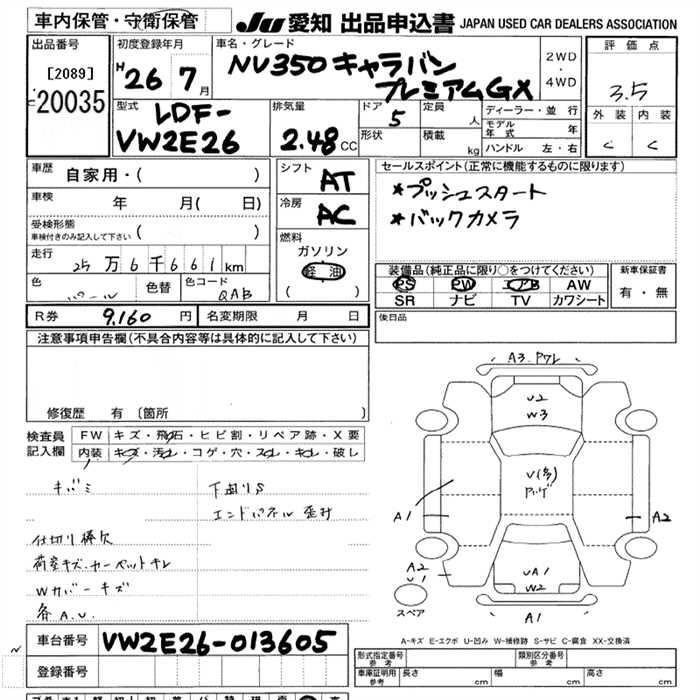 車内保管・守衛保管
JU 愛知 出品申込書 JAPAN USED CAR DEALERS ASSOCIATION
出品番号
[2089]
20035
初度登録年月
H 26年 7月
車名・グレード
NV350キャラバン
プレミアムGX
2WD
・
4WD
評価点
3.5
外装 内装
C C
型式
LDF-
VW2E26
排気量
2.48 CC
ドア
5
定員
人
形状
積載
kg
ディーラー・並行
モデル年式 年
ハンドル 左・右
車歴
自家用・( )
車検
年 月( 日)
受検形態
車検付きのみ記入して下さい ( )
走行
25万6千661km
色
パール
色替
色コード
QAB
シフト
AT
冷房
AC
燃料
ガソリン
軽油
( )
セールスポイント(正常に機能するものに限ります)
*プッシュスタート
*バックカメラ
装備品(純正品に限り○をつけてください)
PS PW エアB AW
SR ナビ TV カワシート
新車保証書
有・無
後日品
R券 9,160円
名変期限 月 日
注意事項申告欄(不具合内容等は具体的に記入して下さい)
修復歴 有 〔箇所 〕
検査員記入欄
FW キズ・飛石・ヒビ割・リペア跡・X要
内装 キズ・汚レ・コゲ・穴・スレ・キレ・破レ
キバミ
下廻りS
エンドパネル歪み
仕切り棒欠
荷室キズ・カーペットキレ
Wカバーキズ
各A.U.
A3.Pワレ
U2
W3
U(多)
アンテナ
A1
A2
A2
U1
UA1
W2
A1
スペア
A-キズ E-エクボ U-凹み W-補修跡 S-サビ C-腐食 XX-交換済
車台番号 VW2E26-013605
登録番号
形式指定番号
参考
類別区分番号
参考
車庫証明用
参考
長さ cm
幅 cm
高さ cm